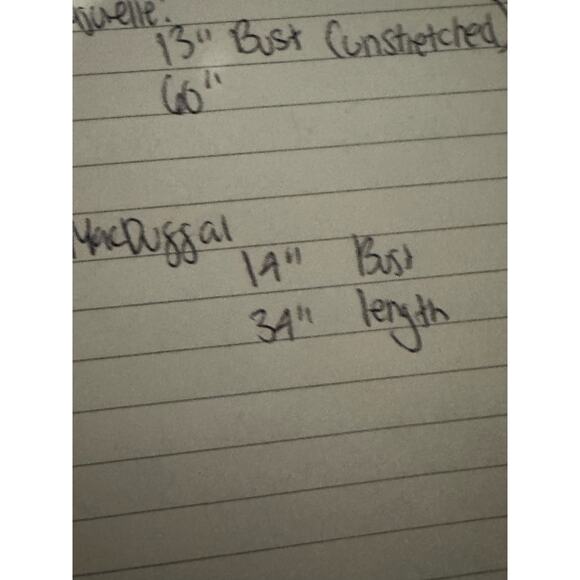 13" Bust (unstretched)
60"
MacDuggal
14" Bust
34" length